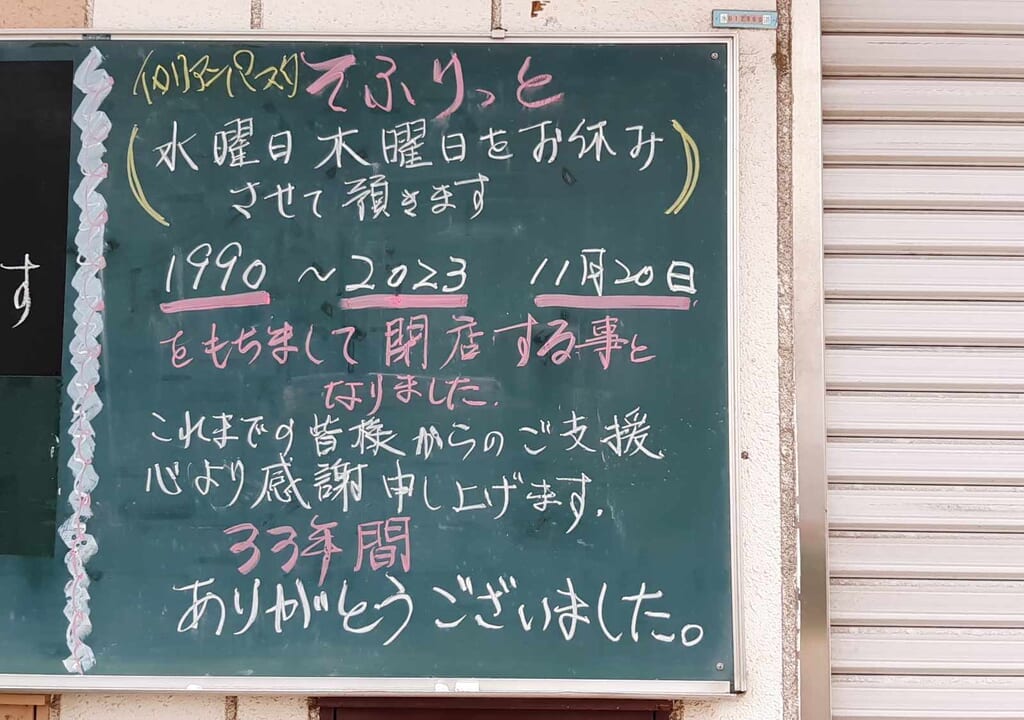 イタリアンパスタ そふりっと
(水曜日木曜日をお休み
させて頂きます)
1990 ～2023 11月20日
をもちまして閉店する事と
なりました.
これまでの皆様からのご支援
心より感謝申し上げます.
33年間
ありがとうございました。
す